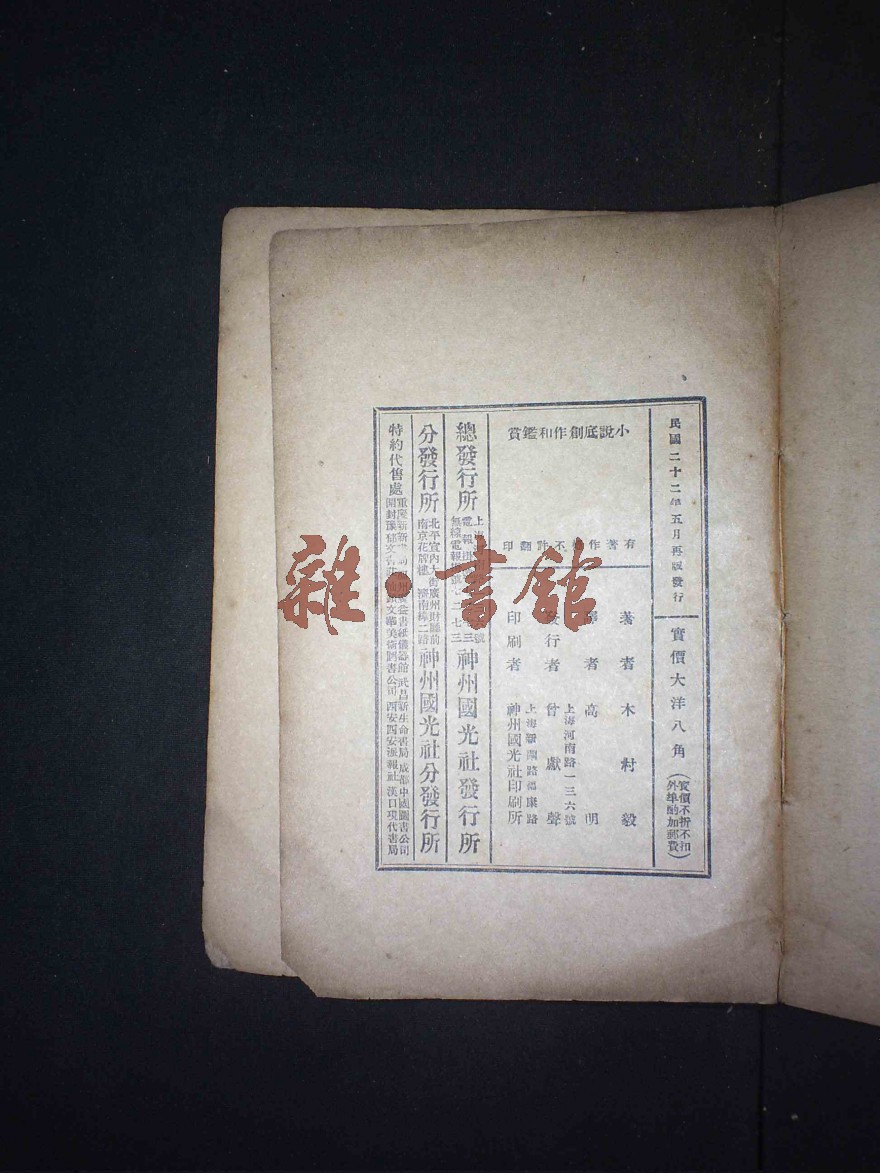 民國二十二年五月再版發行
實價大洋八角
(實價不折不扣
外埠酌加郵費)
小說底創作和鑑賞
有著作權不許翻印
著者 木村毅
譯者 高明
上海河南路一三六號
發行者 曾獻聲
上海新閘路福康路
印刷者 神州國光社印刷所
總發行所
神州國光社發行所
分發行所
北平宣內大街 廣州財廳前
南京花牌樓 濟南緯二路
神州國光社分發行所
特約代售處
武昌新生命書局 成都中國圖書公司
西安西安派報社 漢口現代書局
雜·書館